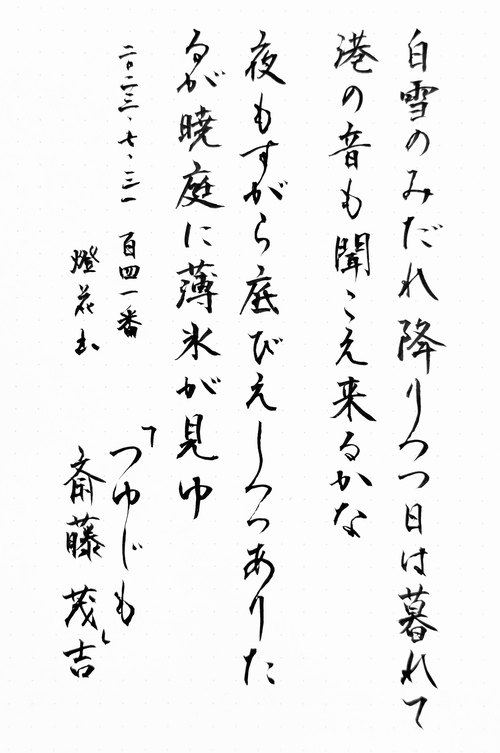 白雪のみだれ降りつつ日は暮れて
港の音も聞こえ来るかな
夜もすがら底びえしつつありた
るが暁庭に薄氷が見ゆ
二〇二三、七、三一 百四一番
燈花
「つゆじも」
斎藤茂吉